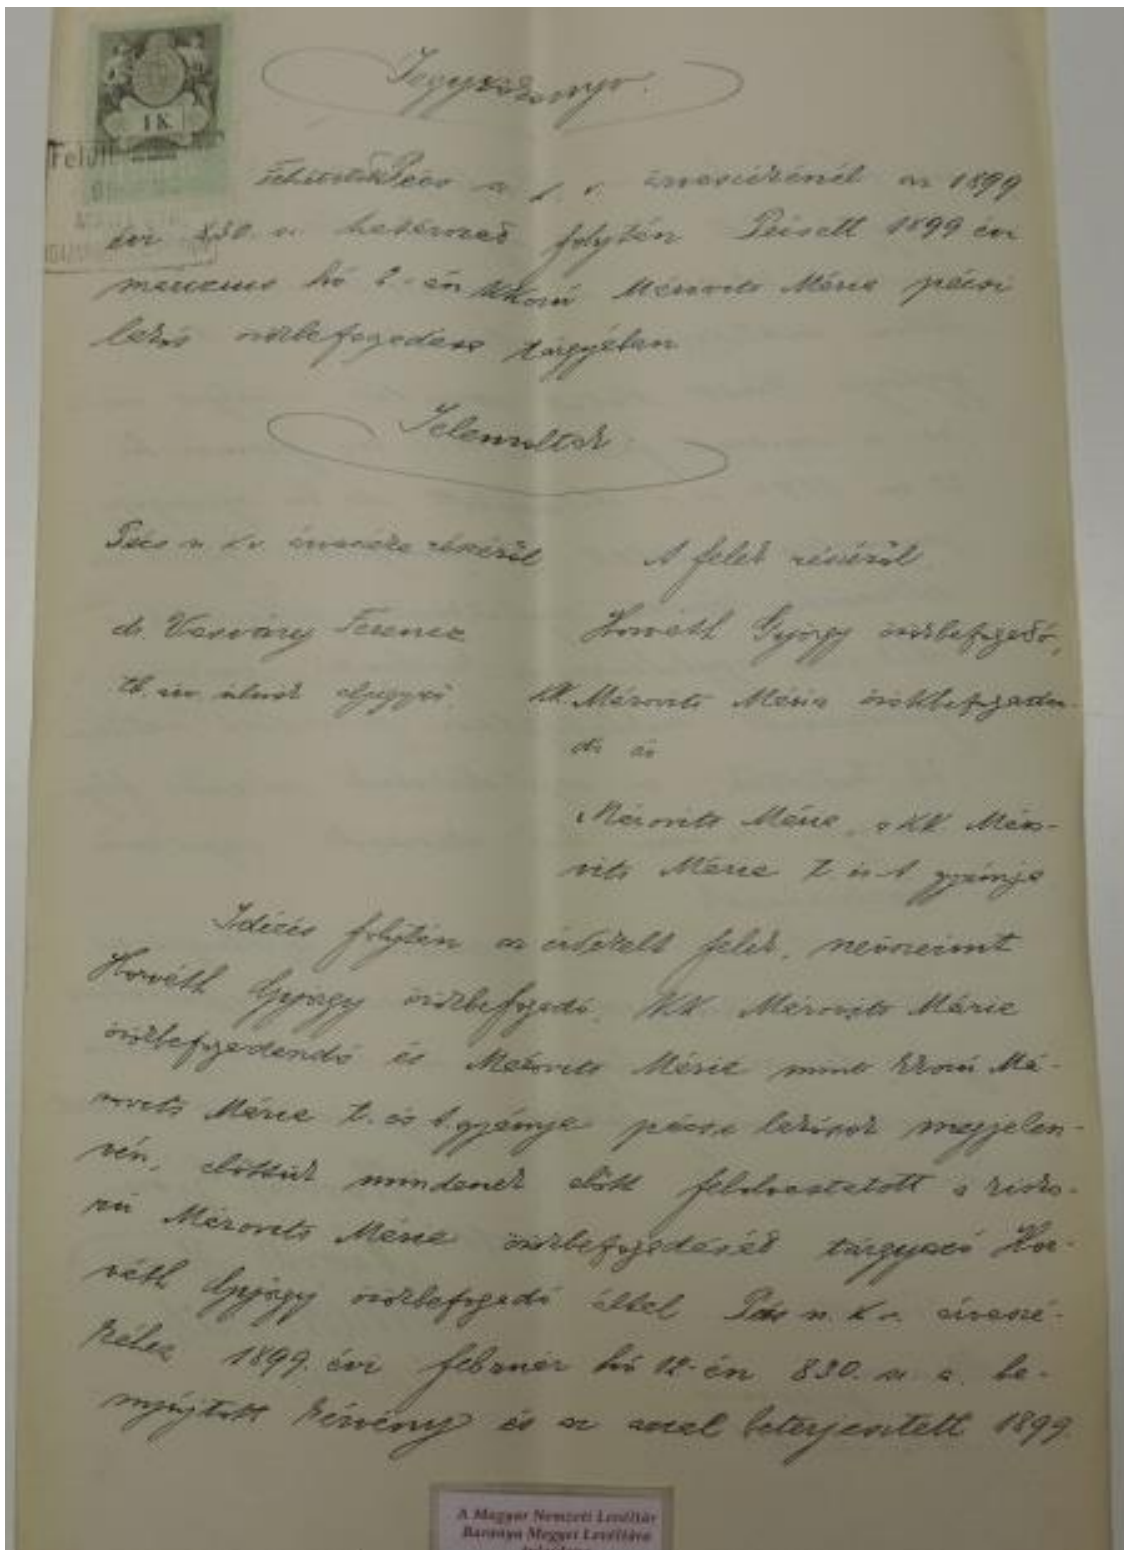 Jegyzőkönyv.
1 K.
Felül
Felvétetett Pécs sz. k. v. árvaszékénél az 1899
évi 830. sz. határozat folytán Pécsett 1899 évi
márczius hó 2-án kkorú Mérovits Mária pécsi
lakós örökbefogadása tárgyában
Jelenvoltak
Pécs sz. k. v. árvaszéke részéről
A felek részéről
dr. Vasváry Ferencz
Horváth György örökbefogadó,
tb. árv. ülnök aljegyző.
kk. Mérovits Mária örökbefogadan-
dó és
Mérovits Mária, a kk. Méro-
vits Mária t. és t. gyámja
Idézés folytán az érdekelt felek, névszerint
Horváth György örökbefogadó, kk. Mérovits Mária
örökbefogadandó és Mérovits Mária mint kkorú Mé-
rovits Mária t. és t. gyámja pécsi lakósok megjelen-
vén, előttük mindenek előtt felolvastatott a kisko-
rú Mérovits Mária örökbefogadását tárgyazó Hor-
váth György örökbefogadó által Pécs sz. k. v. árvaszé-
kéhez 1899. évi február hó 12-én 830. sz. a. be-
nyújtott kérvény és az azzal beterjesztett 1899
A Magyar Nemzeti Levéltár
Baranya Megyei Levéltára